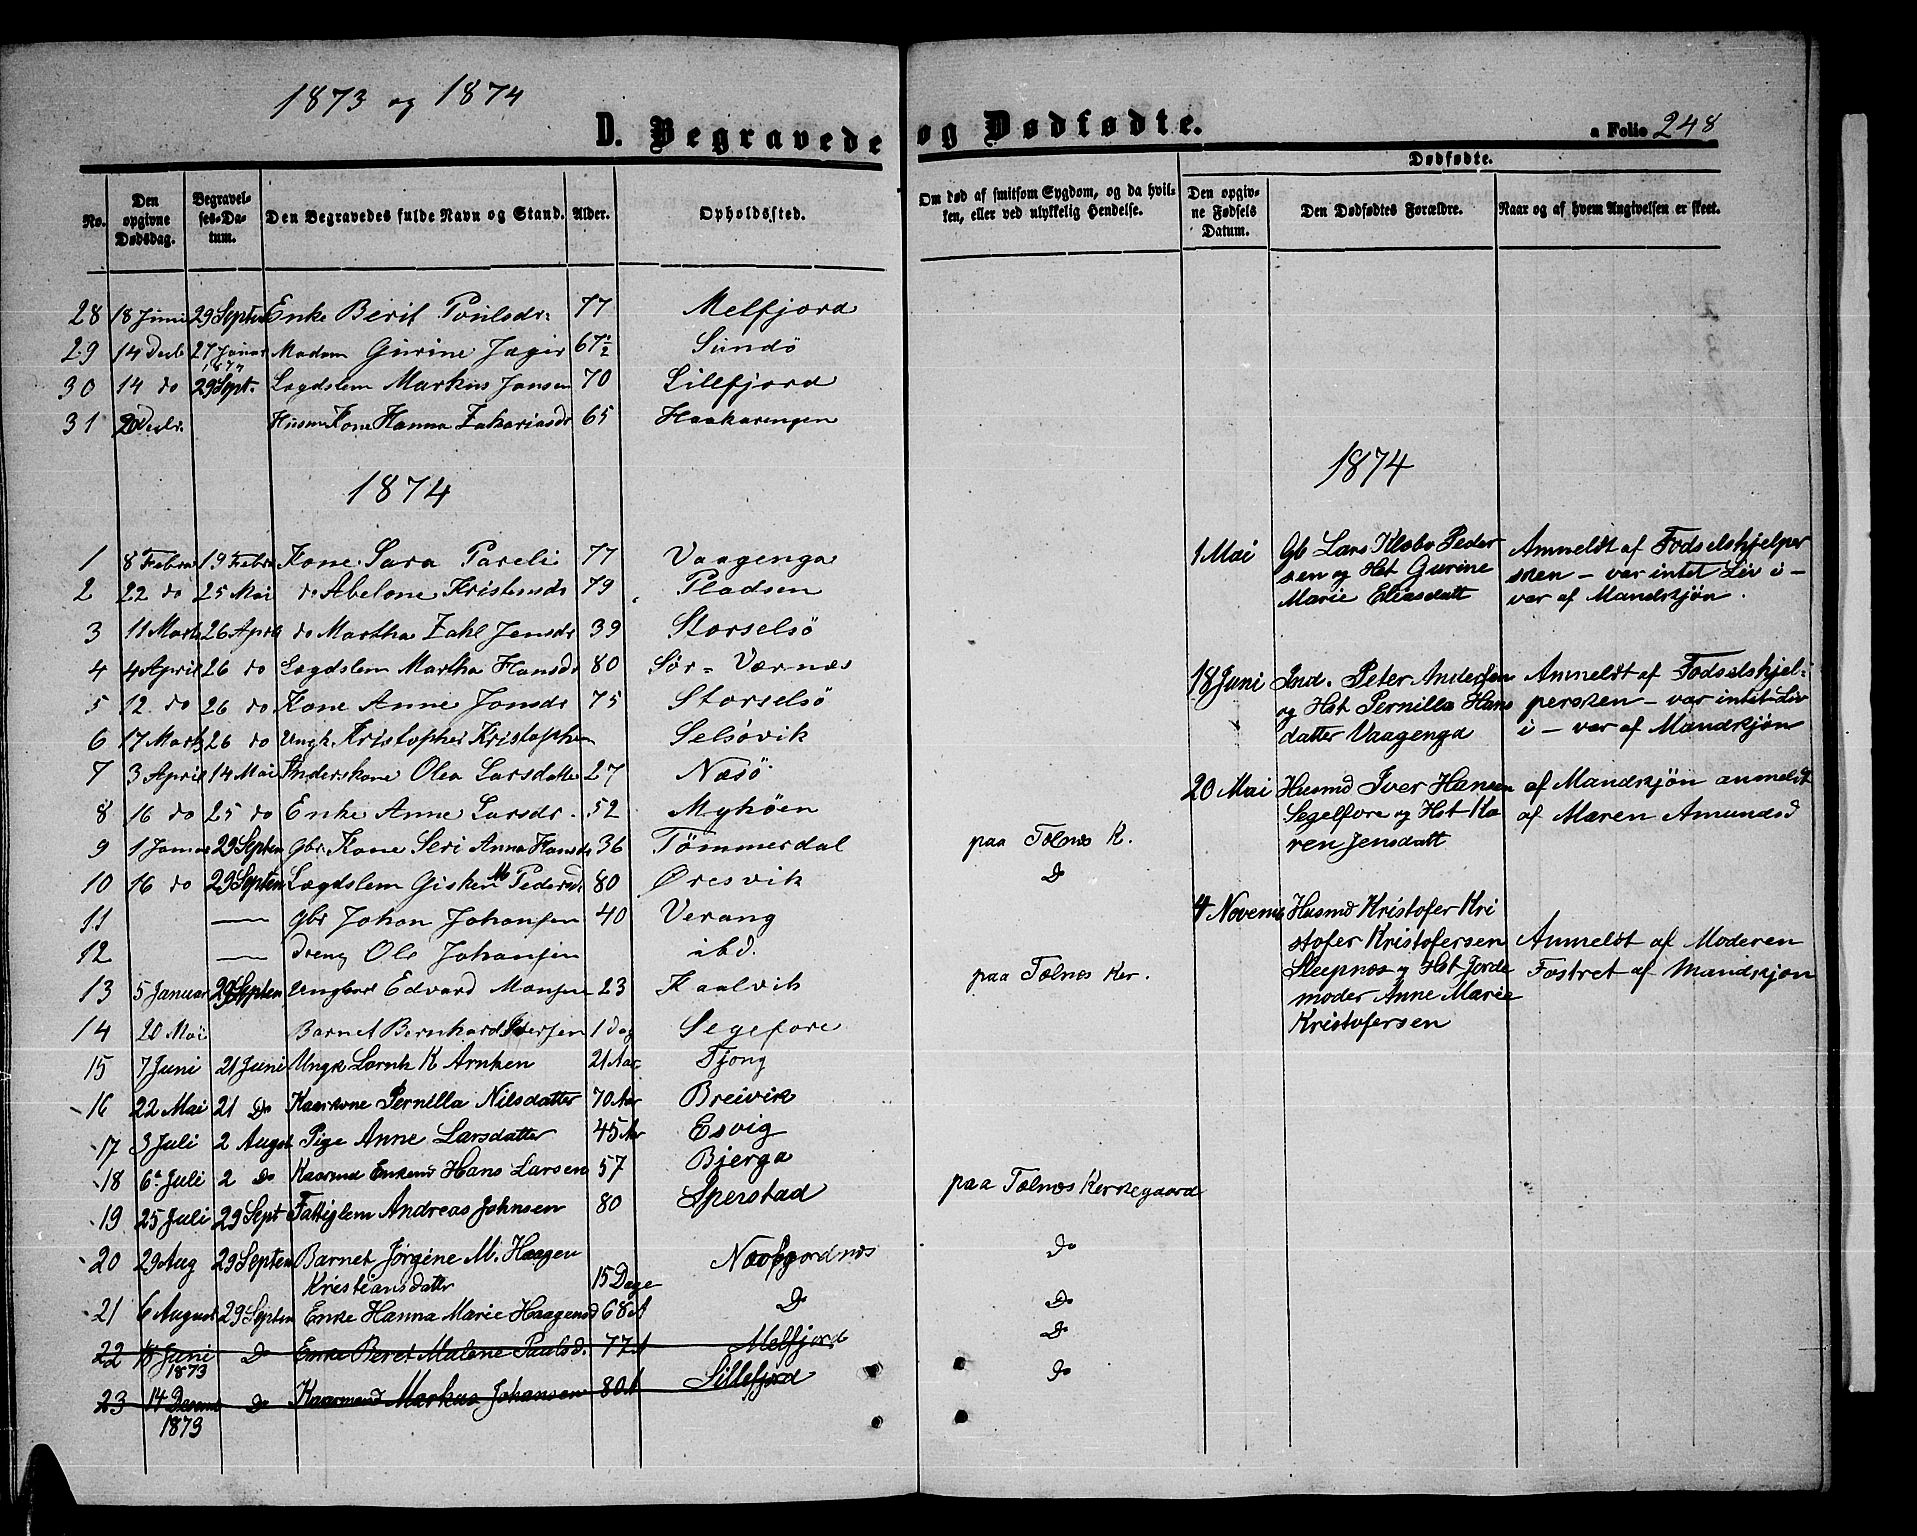 1873 og 1874
D. Begravede og Dødfødte.
a Folio 248
No. Den opgivne Dødsdag. Begravelses-Datum. Den Begravedes fulde Navn og Stand. Alder. Opholdssted. Om død af smitsom Sygdom, og da hvilken, eller ved ulykkelig Hendelse. Dødfødte. Den opgivne Fødsels Datum. Den Dødfødtes Forældre. Naar og af hvem Angivelsen er skeet.
28 18 Juni 29 Septen Enke Berit Poulsdr. 77 Melfjord
29 14 Decb 27 Januar 1874 Madam Gurine Jæger 67½ Sundö
30 14 do 29 Sept. Lægdslem Markus Jansen 70 Lillfjord
31 Decbr. Husm Kone Hanna Zakariasdr 65 Haakaringen
1874
1 8 Febru 19 Febru Kone Sara Pareli 77 Vaagenga
2 22 do 25 Mai do Abelone Kristensdr 79 Pladsen
3 11 Marts 26 April do Martha Zahl Jensdr 39 Storselsö
4 4 April 26 do Lægdslem Martha Hansdr 80 Sør-Værnæs
5 12 do 26 do Kone Anne Jonsdr 75 Storselsö
6 17 Marts 26 do Ungk. Kristopher Kristophen Selsövik
7 3 April 14 Mai Inderskone Olea Larsdatter 27 Næsö
8 16 do 25 do Enke Anne Larsdr. 52 Myhöen
9 1 Januar 29 Septen Gbr. Kone Seri Anna Hansdr 36 Tömmerdal paa Tølnes K.
10 16 do 29 Septen Lægdslem Gisken M Pedersd 80 Øresvik Do
11 — Gbr Johan Johansen 40 Verang
12 — Dreng Ole Johansen ibd.
13 5 Januar 29 Septen Ungkar Edvard Monsen 23 Kaalvik paa Tølnes Ker.
14 20 Mai Barnet Bernhard Iversen 1 dag Segefore
15 7 Juni 21 Juni Ungk K Arntzen 21 Aar Tjong
16 22 Mai 21 Do Kaarkone Pernilla Nilsdatter 70 Aar Breivik
17 3 Juli 2 August Pige Anne Larsdatter 45 Ar Esvig
18 6 Juli 2 Do Kaarmd Enkemd Hans Larsen 57 Bjerga
19 25 Juli 29 Sept Fattiglem Andreas Johnsen 80 Sperstad paa Tølnes Kerkegaard
20 29 Aug 29 Septen Barnet Jørgine M. Haagen
Kristiansdatter 15 Dage Næsfjordnes Do
21 6 August 29 Septen Enke Hanna Marie Haagensd 68 A Do Do
22 18 Juni 1873 Do Enke Beret Malene Paulsd. 77 A Melfjord Do
23 14 Decemb 1873 Do Kaarmand Markus Johansen 80 A Lillefjord Do
1874
1 Mai Gb Lars Klæbo Peder
sen og Hst Gurine
Marie Eliasdatt
Anmeldt af Fodselshjelper
sken – var intet Liv i –
var af Mandskjøn.
18 Juni Ind. Peter Andersen
og Hst Pernilla Hans
datter Vaagenga
Anmeldt af Fodselshjel-
persken – var intet Liv
i – var af Mandskjøn
20 Mai Husmd Iver Hansen
Segelfore og Hst Ka
ren Jensdatt
af Mandskjøn anmeldt
af Maren Amundsd
4 Novemb Husmd Kristofer Kri
stofer Kristofersen
Sleepnes og Hst Jorde
moder Anne Marie
Kristofersen
Anmeldt af Moderen
Fostret af Mandskjøn